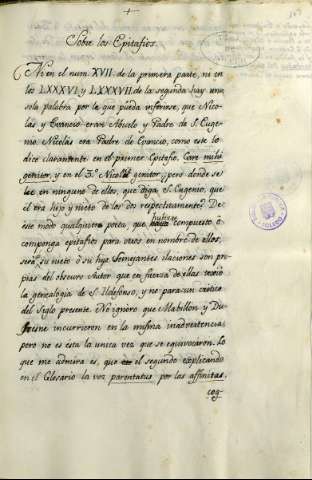 +
Sobre los Epitafios.
Ni en el num. XVII. de la primera parte, ni en
los LXXXVI y LXXXVII. de la segunda hay una
sola palabra por la que pueda inferirse, que Nico-
lás y Evancio eran Abuelo y Padre de S. Euge-
nio. Nicolás era Padre de Evancio, como este lo
dice claramente en el primer Epitafio. Care mihi
genitor, y en el 3.º Nicolás genitor; pero donde se
lee en ninguno de ellos, que diga S. Eugenio, que
él era hijo y nieto de los dos respectivamente? De
ese modo qualquiera poeta, que hubiese compuesto ó
componga epitafios para otros en nombre de ellos,
será su nieto ó su hijo. Semejantes ilaciones son pro-
pias del obscuro Autor que en fuerza de ellas texió
la genealogía de S. Ildefonso, y no para un crítico
del Siglo presente. No ignoro que Mabillon y Du
incurrieron en la misma inadvertencia,
pero no es esta la unica vez que se equivocáron. Lo
que me admira es, que el segundo explicando
en el Glosario la voz parentatus por las affinitas,
cog-